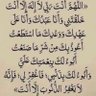 «اللَّهُمَّ أَنْتَ رَبِّي لَا إِلَهَ إِلَّا أَنْتَ
خَلَقْتَنِي وَأَنَا عَبْدُكَ وَأَنَا عَلَى
عَهْدِكَ وَوَعْدِكَ مَا اسْتَطَعْتُ
أَعُوذُ بِكَ مِنْ شَرِّ مَا صَنَعْتُ
أَبُوءُ لَكَ بِنِعْمَتِكَ عَلَيَّ
وَأَبُوءُ لَكَ بِذَنْبِي فَاغْفِرْ لِي، فَإِنَّهُ
لَا يَغْفِرُ الذُّنُوبَ إِلَّا أَنْتَ»